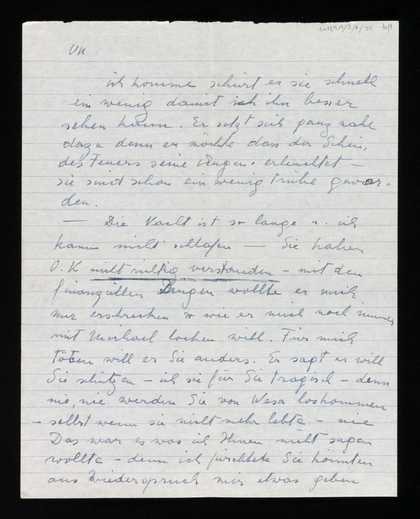 VII.
ich komme schürt er sie schnell
ein wenig damit ich ihn besser
sehen kann. Er setzt sich ganz nahe
dazu denn er möchte dass der Schein
des Feuers seine Augen erleuchtet –
sie sind schon ein wenig trübe gewor-
den.
— Die Nacht ist so lange u. ich
kann nicht schlafen — Sie haben
O.K. nicht richtig verstanden – mit den
Dingen wollte er mich
nur erschrecken so wie er mich noch immer
mit locken will. Für mich
will er Sie anders. Er sagt er will
Sie schützen – ich sei für Sie tragisch – denn
nie, nie werden Sie von loskommen
– selbst wenn sie nicht mehr lebte – nie
Das war es was ich Ihnen nicht sagen
wollte – denn ich fürchtete Sie könnten
aus Widerspruch mir etwas geben